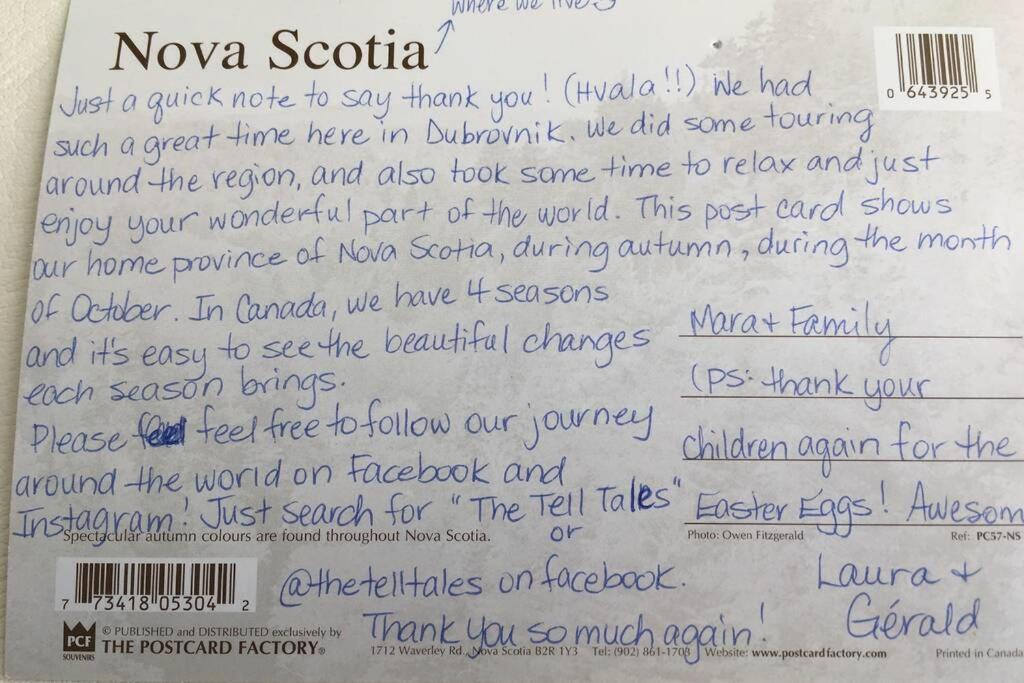 where we live
Nova Scotia
0 643925 5
Just a quick note to say thank you! (Hvala!!) We had
such a great time here in Dubrovnik. We did some touring
around the region, and also took some time to relax and just
enjoy your wonderful part of the world. This post card shows
our home province of Nova Scotia, during autumn, during the month
of October. In Canada, we have 4 seasons
and it's easy to see the beautiful changes
each season brings.
Please feel free to follow our journey
around the world on Facebook and
Instagram! Just search for "The Tell Tales"
or
@thetelltales on facebook.
Thank you so much again!
Mara + Family
(PS: thank your
children again for the
Easter Eggs! Awesom
Laura +
Gérald
Spectacular autumn colours are found throughout Nova Scotia.
Photo: Owen Fitzgerald
Ref: PC57-NS
7 73418 05304 2
PCF
SOUVENIRS
© PUBLISHED and DISTRIBUTED exclusively by
THE POSTCARD FACTORY®
1712 Waverley Rd., Nova Scotia B2R 1Y3 Tel: (902) 861-1703 Website: www.postcardfactory.com
Printed in Canada